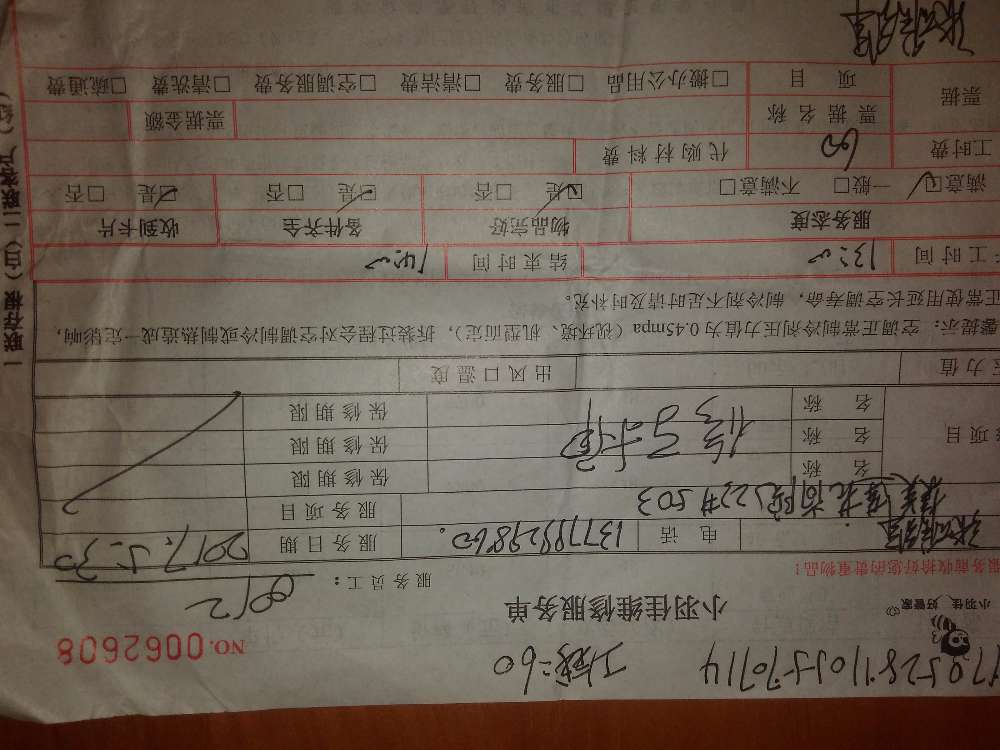 170528110J570714
NO.0062608
小羽佳 好管家
小羽佳维修服务单
服务员工: 0012
服务前收拾好您的贵重物品!
电 话 13779929860. 服务日期 2017.5.30
服务项目
名 称 保修期限
名 称 保修期限
名 称 保修期限
力值 出风口温度
馨提示: 空调正常制冷剂压力值为0.45mpa (视环境、机型而定), 拆装过程会对空调制冷或制热造成一定影响,
正常使用延长空调寿命, 制冷剂不足时请及时补充。
工时间 13:00 结束时间 14:00
服务态度 物品完好 备件齐全 收到卡片
满意☑ 一般□ 不满意□ ☑是 □否 ☑是 □否 ☑是 □否
工时费 60 代购材料费
票据 票据名称 票据金额
项 目 □搬办公用品 □服务费 □清洁费 □空调服务费 □清洗费 □疏通费
一联存根(白) 二联客户(红)